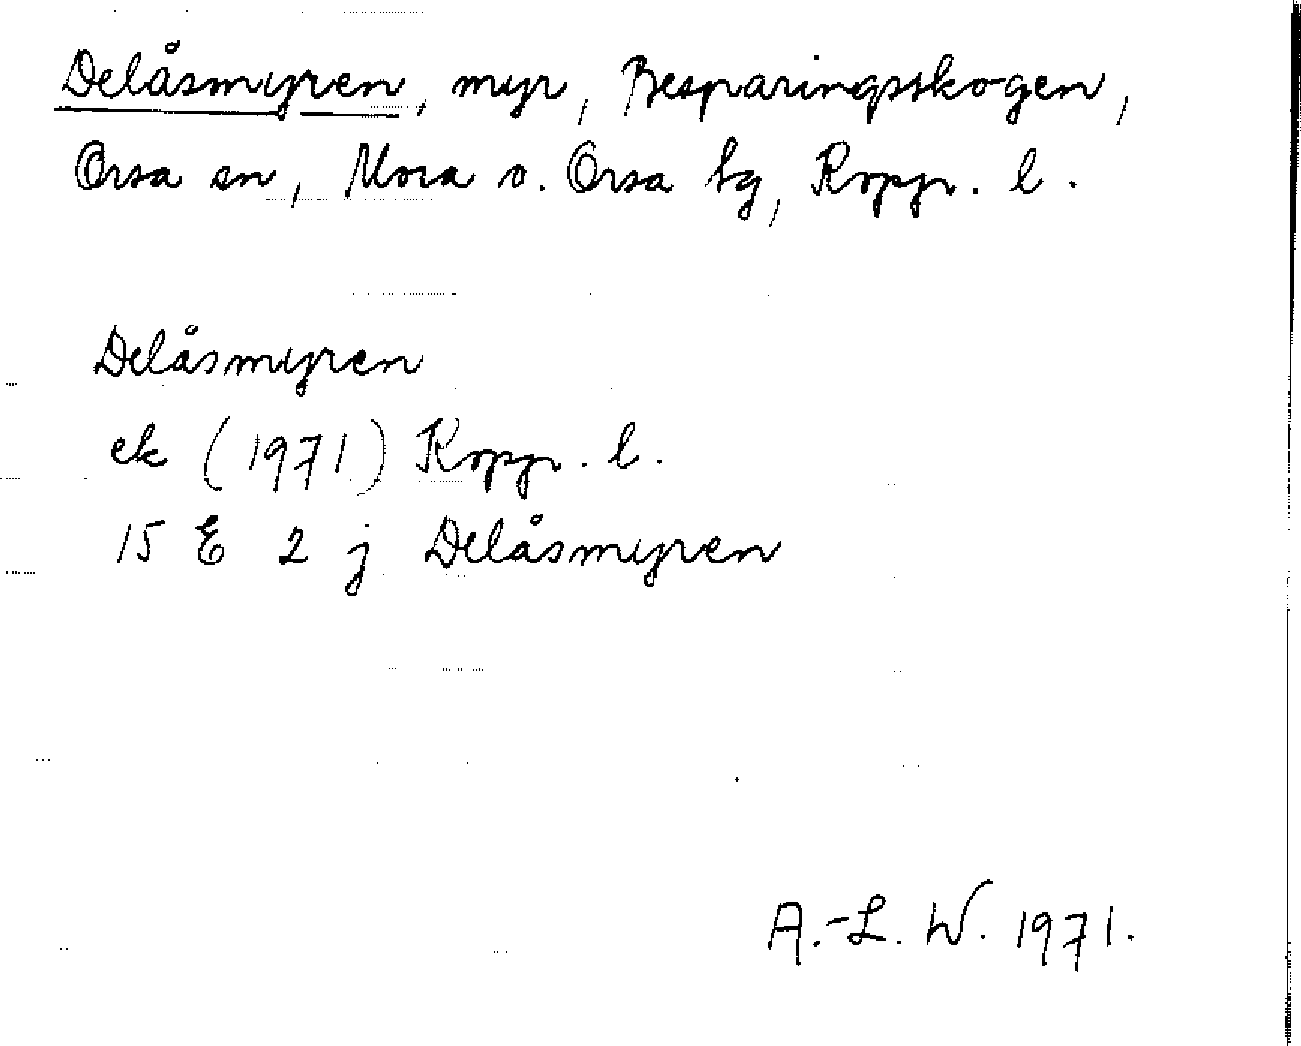 Delåsmyren, myr, Besparingsskogen,
Orsa sn, Mora o. Orsa tg, Kopp. l.
Delåsmyren
ek (1971) Kopp. l.
15 E 2 j Delåsmyren
A.-L. W. 1971.